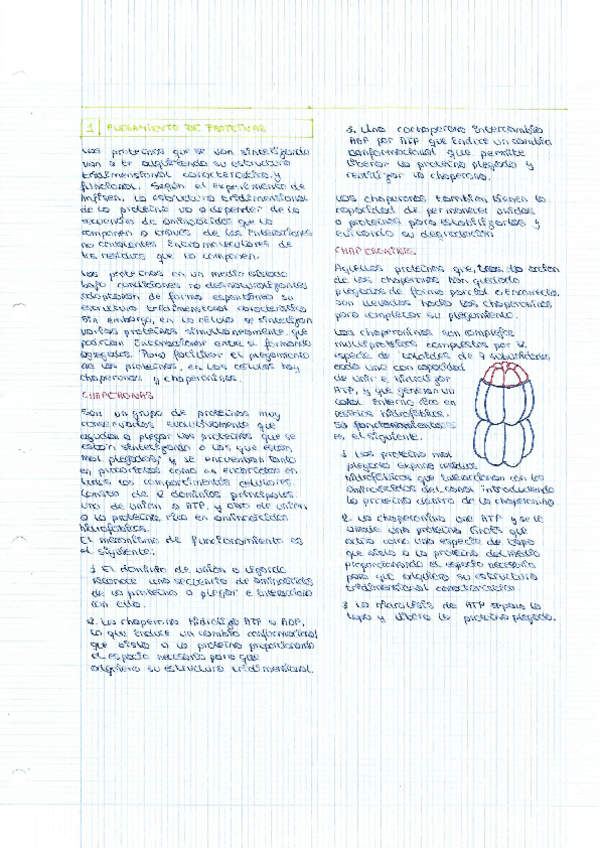 1 PLEGAMIENTO DE PROTEÍNAS
Las proteínas que se van sintetizando
van a ir adquiriendo su estructura
tridimensional característica y
funcional. Según el experimento de
Anfisen, la estructura tridimensional
de la proteína va a depender de la
secuencia de aminoácidos que la
componen a través de las interacciones
no covalentes intramoleculares de
los residuos que la componen.
Las proteínas en un medio aislado
bajo condiciones no desnaturalizantes
adoptarán de forma espontánea su
estructura tridimensional característica
Sin embargo, en la célula se sintetizan
varias proteínas simultáneamente que
podrían interaccionar entre sí formando
agregados. Para facilitar el plegamiento
de las proteínas, en las células hay
chaperonas y chaperoninas.
CHAPERONAS
Son un grupo de proteínas muy
conservadas evolutivamente que
ayudan a plegar las proteínas que se
están sintetizando o las que están
mal plegadas, y se encuentran tanto
en procariotas como en eucariotas en
todos los compartimentos celulares.
Consta de 2 dominios principales:
uno de unión a ATP, y otro de unión
a la proteína, rica en aminoácidos
hidrofóbicos.
El mecanismo de funcionamiento es
el siguiente:
1 El dominio de unión a ligando
reconoce una secuencia de aminoácidos
de la proteína a plegar e interacciona
con ella.
2. La chaperona hidroliza ATP a ADP,
lo que induce un cambio conformacional
que aísla a la proteína proporcionando
el espacio necesario para que
adquiera su estructura tridimensional.
3. Una cochaperona intercambia
ADP por ATP que induce un cambio
conformacional que permite
liberar la proteína plegada y
reutilizar la chaperona.
Las chaperonas también tienen la
capacidad de permanecer unidas
a proteínas para estabilizarlas y
evitando su degradación
CHAPERONINAS
Aquellas proteínas que, tras la acción
de las chaperonas han quedado
plegadas de forma parcial o incorrecta,
son llevadas hacia las chaperoninas
para completar su plegamiento.
Las chaperoninas son complejos
multiproteicos compuestos por 2
especie de toroides de 7 subunidades
cada uno con capacidad
de unir e hidrolizar
ATP, y que generan un
canal interno rico en
residuos hidrofóbicos.
Su funcionamiento
es el siguiente.
1 Las proteína mal
plegada expone residuos
hidrofóbicos que interaccionan con los
aminoácidos del canal introduciendo
la proteína dentro de la chaperonina
2. La chaperonina une ATP y se le
añade una proteína GroES que
actúa como una especie de tapa
que aísla a la proteína del medio
proporcionando el espacio necesario
para que adquiera su estructura
tridimensional característica
3 La hidrólisis de ATP separa la
tapa y libera la proteína plegada.